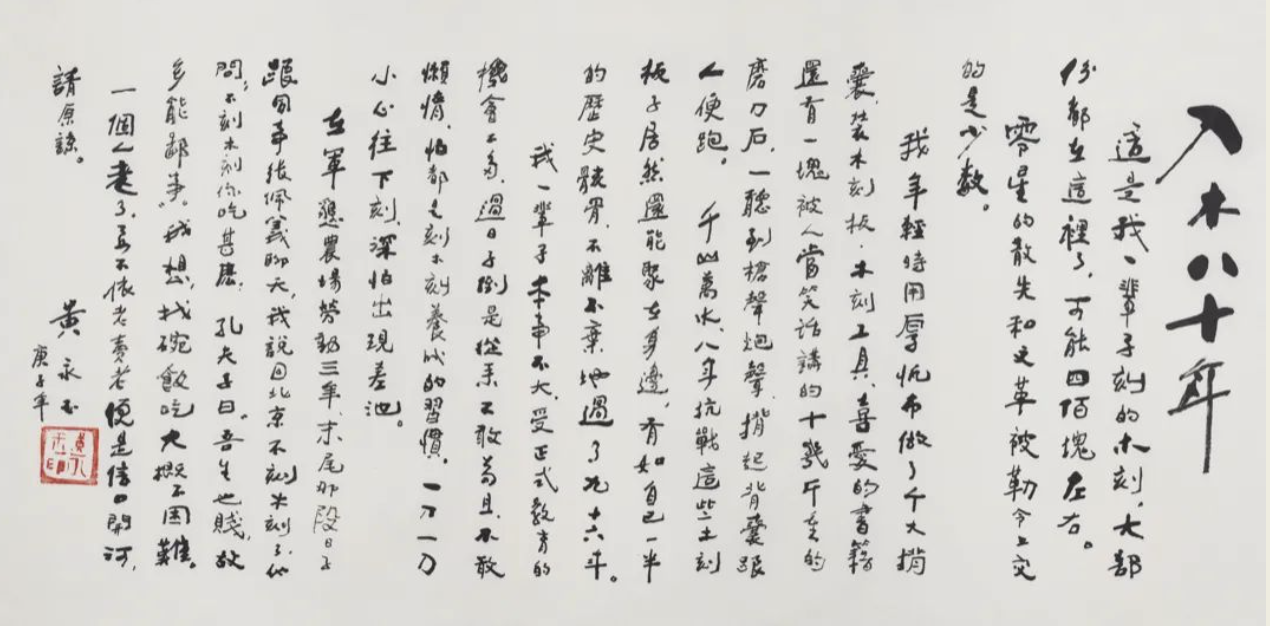 入木八十年
這是我一輩子刻的木刻，大部
份都在這裡了，可能四佰塊左右。
零星的散失和文革被勒令上交
的是少數。
我年輕時用厚帆布做了个大揹
囊，裝木刻板、木刻工具、喜愛的書籍
還有一塊被人當笑話講的十幾斤重的
磨刀石，一聽到槍聲炮聲，揹起背囊跟
人便跑。千山萬水，八年抗戰這些木刻
板子居然還能聚在身邊，有如自己一半
的歷史骸骨，不離不棄地過了九十六年。
我一輩子本事不大，受正式教育的
機會不多，過日子倒是從来不敢苟且、不敢
懶惰，怕都是刻木刻養成的習慣，一刀一刀
小心往下刻，深怕出現差池。
在軍墾農場勞動三年，末尾那段日子
跟同事張佩義聊天，我說回北京不刻木刻了，他
問；不刻木刻你吃甚麽？孔夫子曰。吾生也賤，故
多能鄙事。我想，找碗飯吃大概不困難。
一個人老了，若不依老賣老便是信口開河，
請原諒。
黃永玉
庚子年
黃永玉印